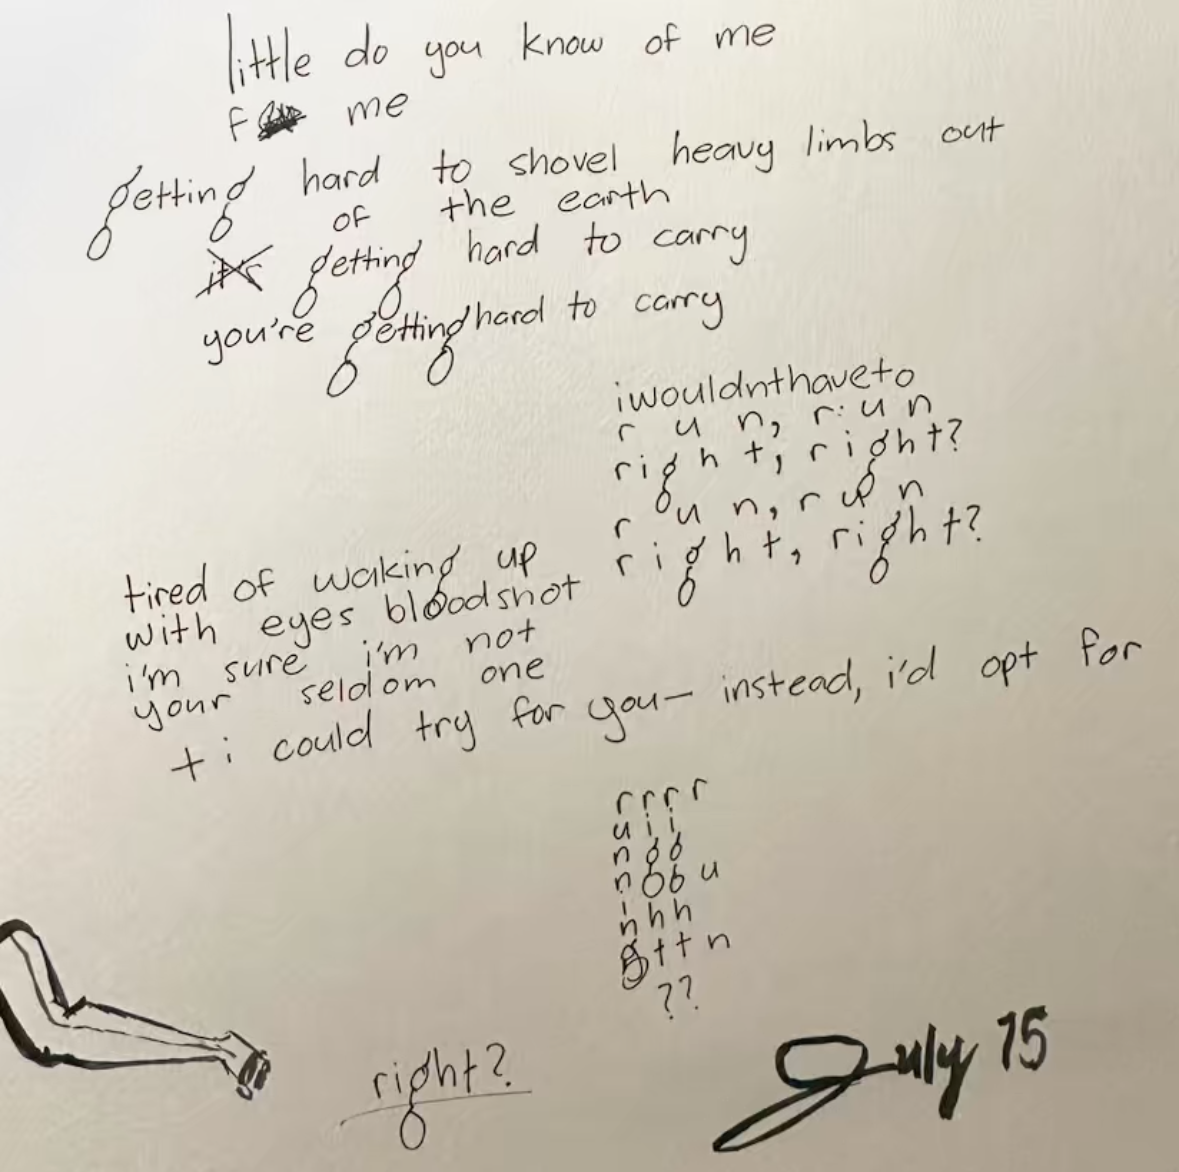 little do you know of me
f me
getting hard to shovel heavy limbs out
of the earth
it's getting hard to carry
you're getting hard to carry
iwouldnthaveto
r u n, r u n
r i g h t, r i g h t?
r u n, r u n
r i g h t, r i g h t?
tired of waking up
with eyes bloodshot
i'm sure i'm not
your seldom one
+ i could try for you— instead, i'd opt for
r r r r
u i i
n g g
n u
i h h
g t t n
? ?
right?
July 15